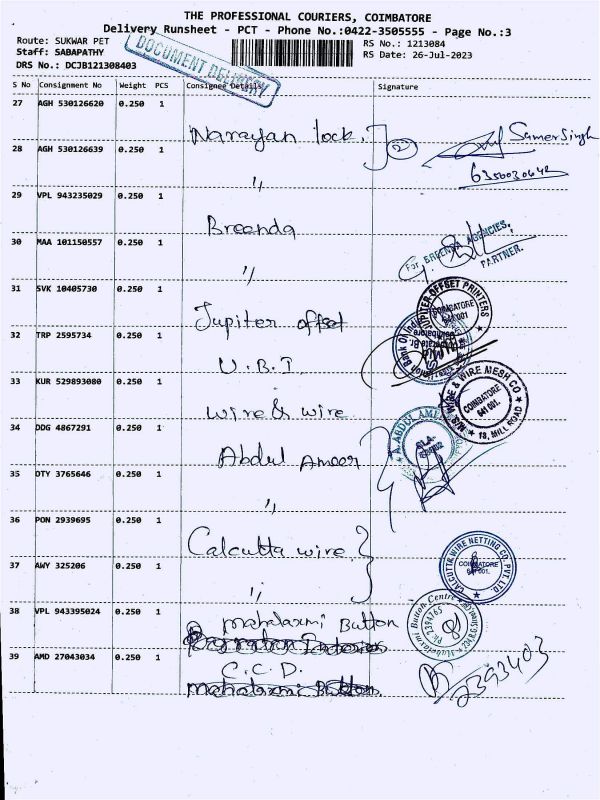 THE PROFESSIONAL COURIERS, COIMBATORE
Delivery Runsheet - PCT - Phone No.:0422-3505555 - Page No.:3
Route: SUKWAR PET
RS No.: 1213084
Staff: SABAPATHY
RS Date: 26-Jul-2023
DRS No.: DCJB121308403
DOCUMENT DELIVERY
S No Consignment No Weight PCS Consignee Details Signature
27 AGH 530126620 0.250 1 Narayan lock. Samer Singh
28 AGH 530126639 0.250 1 " 2
29 VPL 943235029 0.250 1 Breenda
30 MAA 101150557 0.250 1 " For BREENDA AGENCIES, PARTNER.
31 SVK 10405730 0.250 1 Jupiter offset JUPITER OFFSET PRINTERS COIMBATORE 641 001
32 TRP 2595734 0.250 1 U.B.I. Union Bank Of India
33 KUR 529893080 0.250 1 wire & wire M/S. WIRE & WIRE MESH CO COIMBATORE 641 001. 18, MILL ROAD
34 DDG 4867291 0.250 1 Abdul Ameer A. ABDUL AMEER
35 DTY 3765646 0.250 1 "
36 PON 2939695 0.250 1 Calcutta wire CALCUTTA WIRE NETTING CO. PVT. LTD. COIMBATORE 641 001.
37 AWY 325206 0.250 1 "
38 VPL 943395024 0.250 1 mahalaxmi Button Mahalaxmi Button Centre Ph: 2394765
39 AMD 27043034 0.250 1 C.C.D. 2393403
mahalaxmi Button.